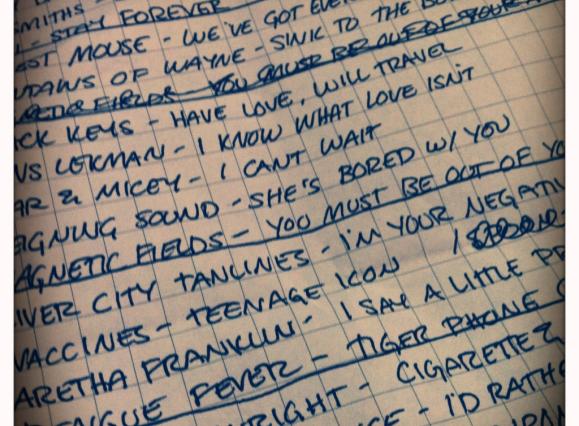 SMITHS -
- STAY FOREVER
ST MOUSE - WE'VE GOT EVE
TAINS OF WAYNE - SINK TO THE BO
FIELDS - YOU MUST BE OUT OF YOUR
CK KEYS - HAVE LOVE, WILL TRAVEL
NS LEKMAN - I KNOW WHAT LOVE ISN'T
AR & MICEY - I CAN'T WAIT
IGNING SOUND - SHE'S BORED W/ YOU
AGNETIC FIELDS - YOU MUST BE OUT OF YO
IVER CITY TANLINES - I'M YOUR NEGATIV
VACCINES - TEENAGE ICON
ARETHA FRANKLIN - I SAY A LITTLE PR
ENGUE FEVER - TIGER PHONE C
RIGHT - CIGARETTE
- I'D RATHE